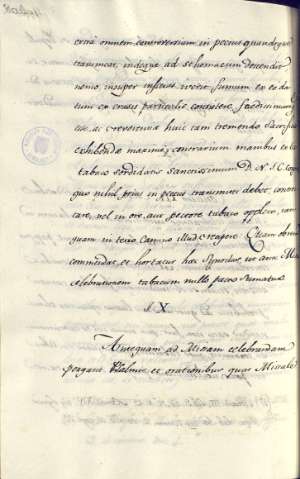 extra omnem controversiam in pectus quandoque
transmeat, indeque ad stomacum descendit
nemo, insuper inficias iverit fumum ex eo dac-
tum ex crasis particulis consistere, foedumumq
esse, ac reverentiæ huic tam tremendo Sacrificio
exhibendæ maxime contrarium manibus ex
tabaco sordidatis sanctissimum D. N. J. C. corpus
quo nihil prius in pectus transmitti debet, contrec-
tare, vel in ore, aut pectore tabaco oppleto, tam
quam in tetro Camino illud
commendat, et hortatur hæc Synodus, ut ante Missæ
celebrationem tabacum nullo pacto sumatur.
§. X.
Antequam ad Missam celebrandam
pergant et orationibus quas Missale